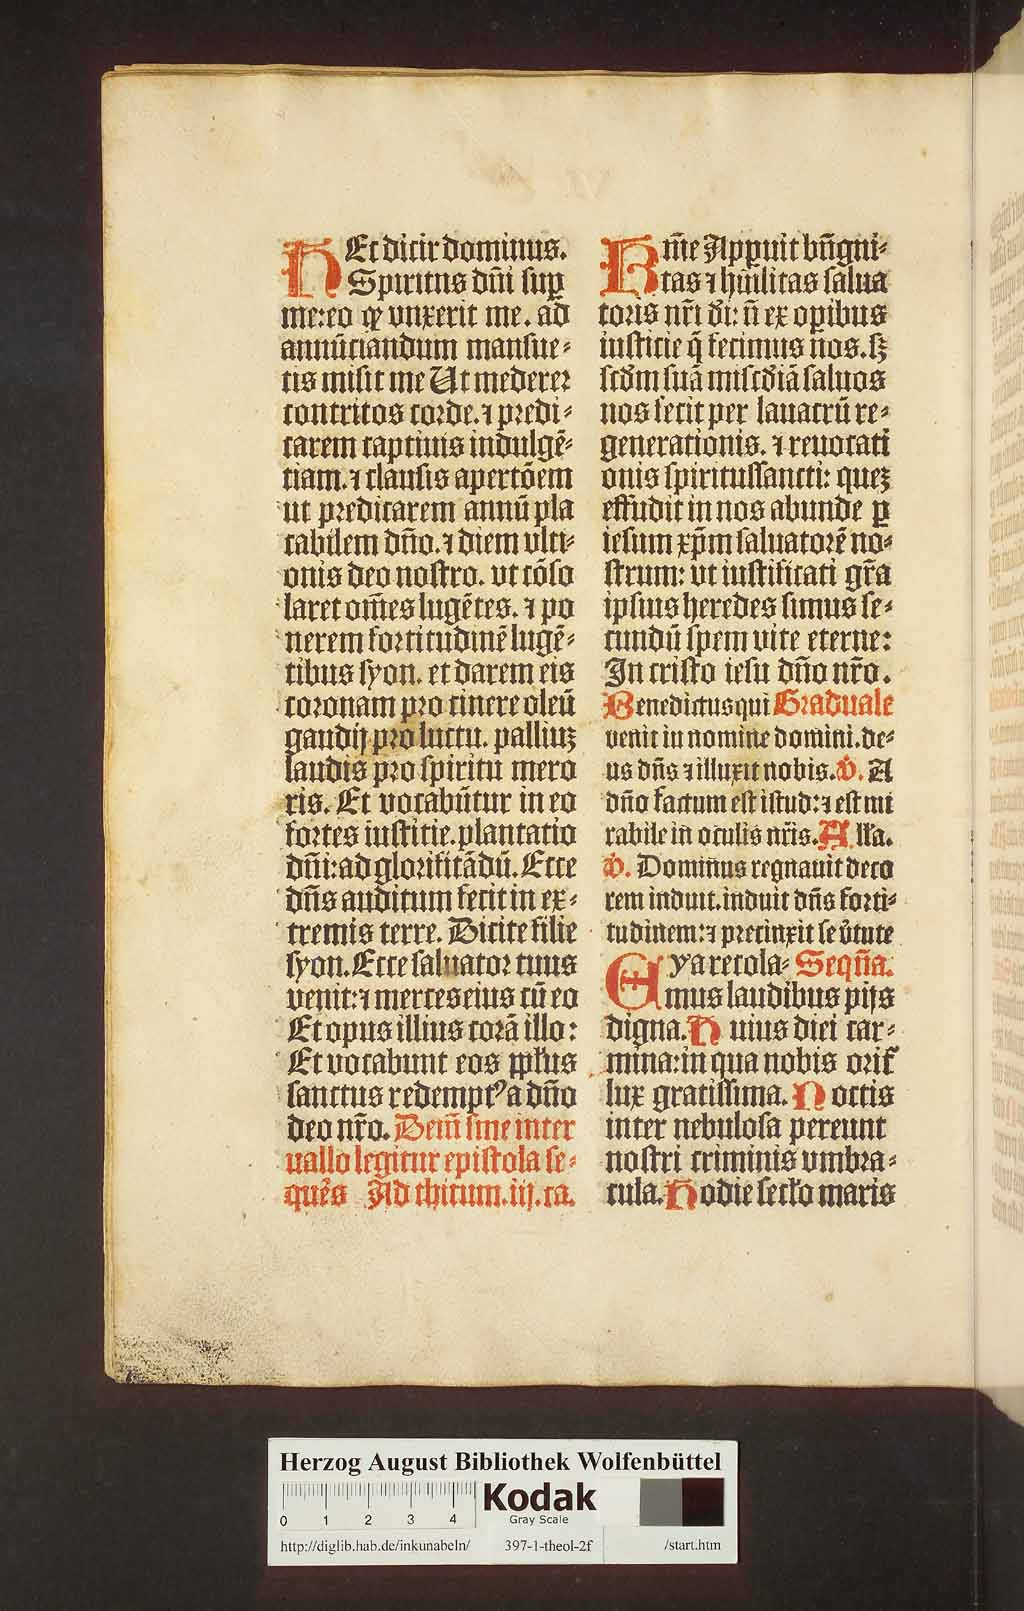 HEc dicit dominus.
Spiritus dñi suꝑ
me: eo ꝙ vnxerit me. ad
annūciandum mansue⸗
tis misit me Ut mederer
contritos corde. ⁊ predi⸗
carem captiuis indulgē⸗
tiam. ⁊ clausis apertōem
ut predicarem annū pla
cabilem dño. ⁊ diem vlti⸗
onis deo nostro. vt cōso
laret om̄es lugētes. ⁊ po
nerem fortitudinē lugē⸗
tibus syon. et darem eis
coronam pro cinere oleū
gaudij pro luctu. palliuꝫ
laudis pro spiritu mero
ris. Et vocabūtur in eo
fortes iusticie. plantatio
dñi: ad glorificādū. Ecce
dñs auditum fecit in ex⸗
tremis terre. Dicite filie
syon. Ecce saluator tuus
venit: ⁊ merces eius cū eo
Et opus illius corā illo:
Et vocabunt eos ppl'us
sanctus redempt⁹ a dño
deo nr̄o. Deiñ sine inter
uallo legitur epistola se⸗
quēs Ad thitum. iij. ca.
Km̄e Apparuit bn̄gni⸗
tas ⁊ hūilitas salua
toris nr̄i d̄i: ñ ex oꝑibus
iusticie q̄ fecimus nos. sꝫ
scd̄m suā miscd̄iā saluos
nos fecit per lauacrū re⸗
generationis. ⁊ reuocati
onis spiritussancti: queꝫ
effudit in nos abunde ꝑ
iesum xp̄m saluatorē no⸗
strum: vt iustificati gr̄a
ipsius heredes simus se⸗
cundū spem vite eterne:
In cristo iesu dño nr̄o.
Benedictus qui Graduale
venit in nomine domini. de⸗
us dñs ⁊ illuxit nobis. V̄. A
dño factum est istud: ⁊ est mi
rabile in oculis nr̄is. All'a.
V̄. Dominus regnauit deco
rem induit. induit dñs forti⸗
tudinem: ⁊ precinxit se v̄tute
EYa recola⸗ Seqn̄a.
mus laudibus pijs
digna. Huius diei car⸗
mina: in qua nobis orit̄
lux gratissima. Noctis
inter nebulosa pereunt
nostri criminis vmbra⸗
cula. Hodie secl'o maris
Herzog August Bibliothek Wolfenbüttel
0 1 2 3 4
Kodak
Gray Scale
http://diglib.hab.de/inkunabeln/ 397-1-theol-2f /start.htm